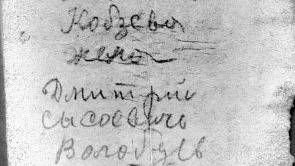 Кобзева
жена
Дмитрий
Сысоевичь
Волобуевъ